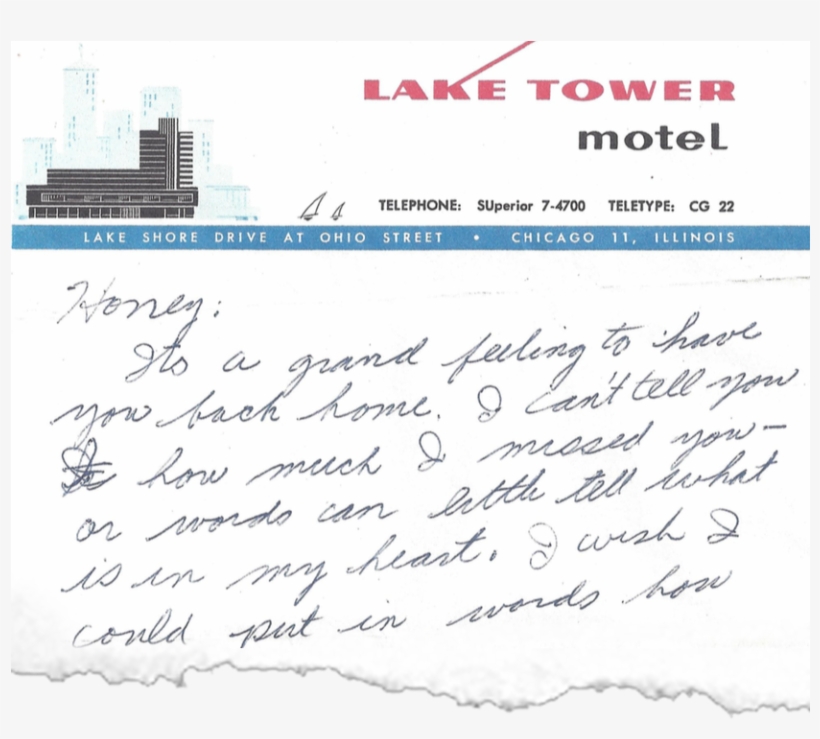 LAKE TOWER
motel
TELEPHONE: SUperior 7-4700 TELETYPE: CG 22
LAKE SHORE DRIVE AT OHIO STREET • CHICAGO 11, ILLINOIS
Honey:
Its a grand feeling to have
you back home. I can't tell you
how much I missed you–
or words can little tell what
is in my heart. I wish I
could put in words how